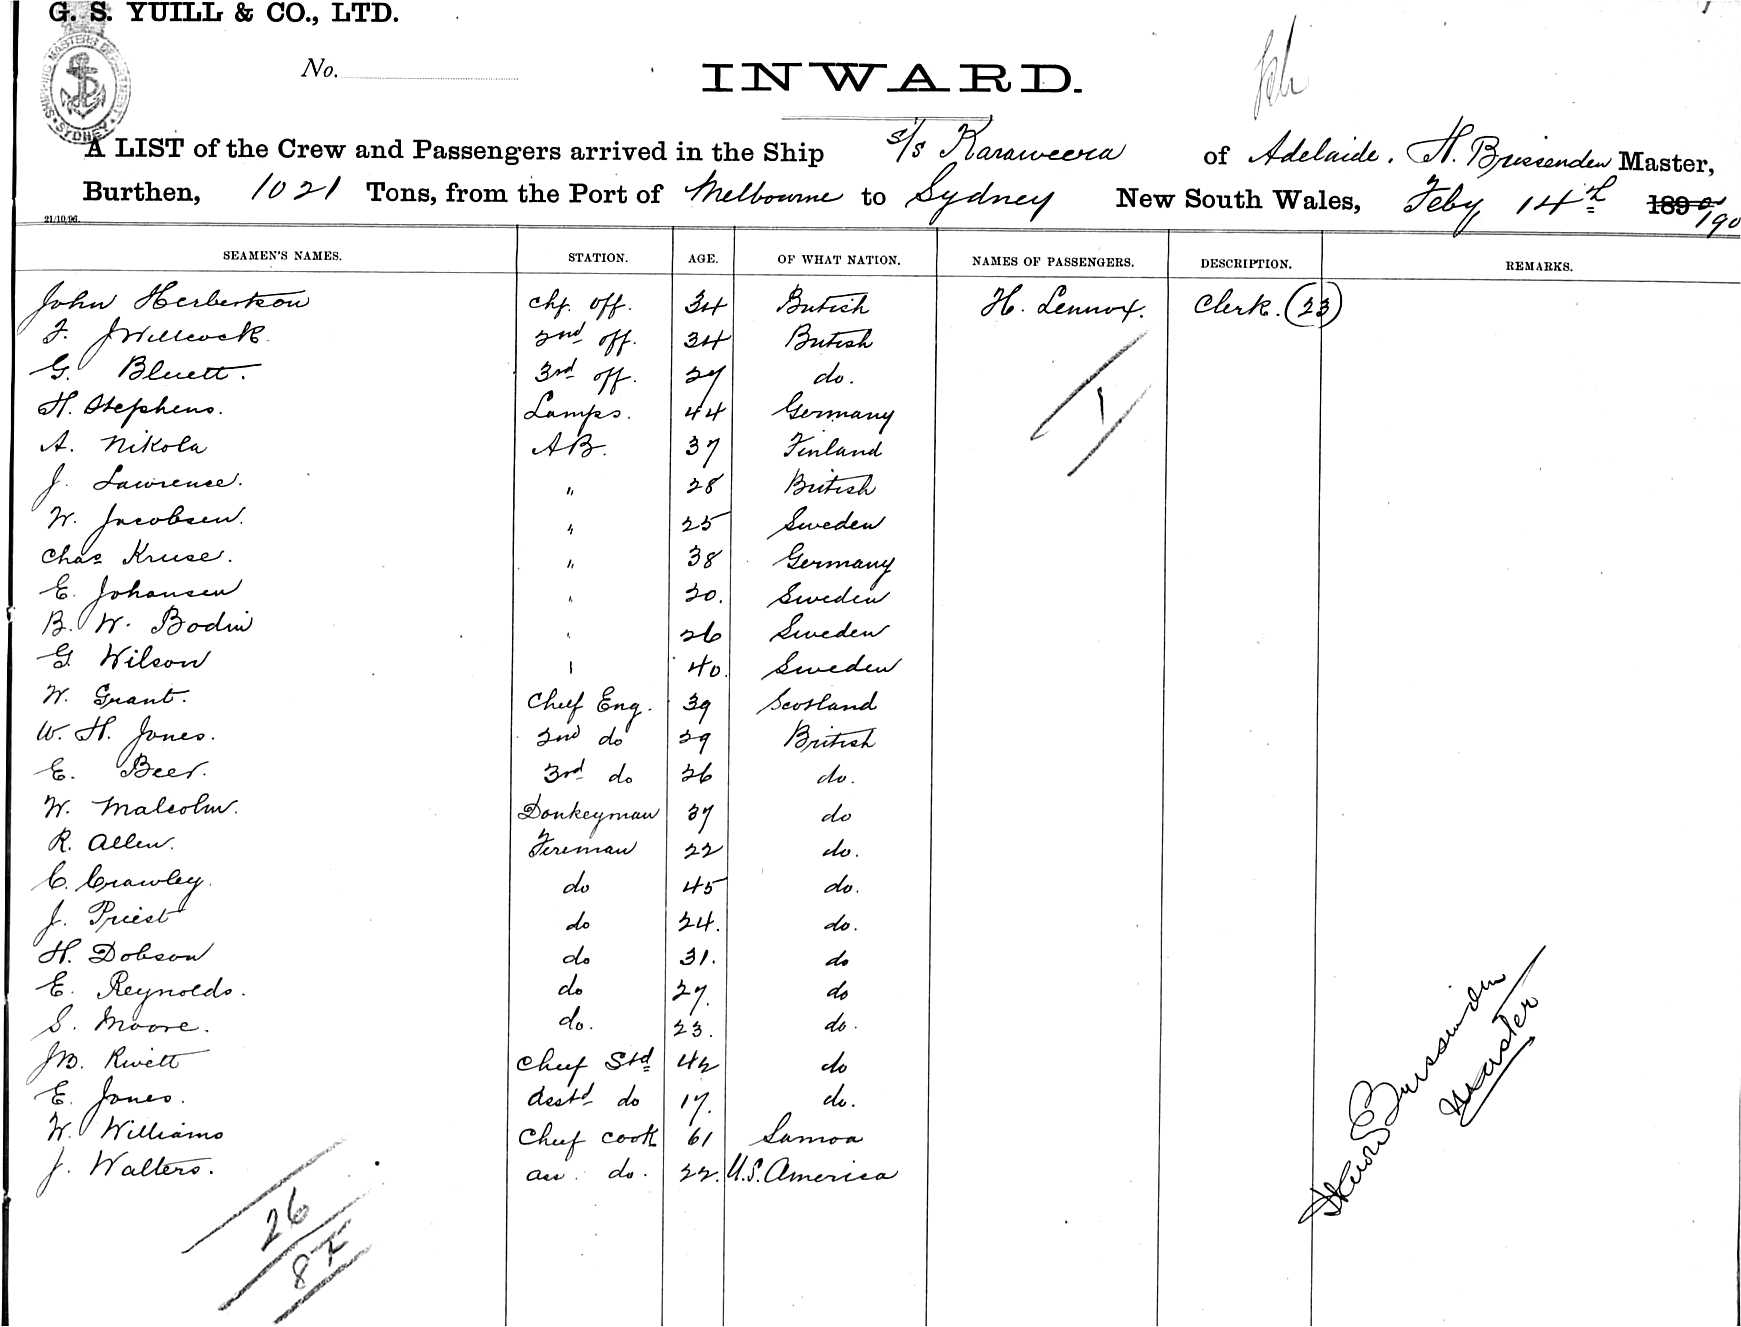 G. S. YUILL & CO., LTD.
SHIPPING MASTERS DEPARTMENT SYDNEY
No.
INWARD.
A LIST of the Crew and Passengers arrived in the Ship s/s Karaweera of Adelaide. H. Brissenden Master,
Burthen, 1021 Tons, from the Port of Melbourne to Sydney New South Wales, Feby 14th 189 190
21/10/96.
SEAMEN'S NAMES. STATION. AGE. OF WHAT NATION. NAMES OF PASSENGERS. DESCRIPTION. REMARKS.
John Herbertson chf. off. 34 British H. Lennox. Clerk. (23)
F. J Willcock 2nd off. 34 British
G. Bluett. 3rd off. 27 do.
H. Stephens. Lamps. 44 Germany
1
A. Nikola AB. 37 Finland
J. Lawrence. " 28 British
W. Jacobsen. " 25 Sweden
Chas Kruse. " 38 Germany
E. Johansen " 20. Sweden
B. W. Bodin " 26 Sweden
G. Wilson " 40. Sweden
W. Grant. Chief Eng. 39 Scotland
W. H. Jones. 2nd do 29 British
E. Beer. 3rd do 26 do.
W. Malcolm. Donkeyman 37 do
R. Allen. Fireman 22 do.
C. Crawley. do 45 do.
J. Priest do 24. do.
H. Dobson do 31. do
E. Reynolds. do 27. do
S. Moore. do. 23. do.
J B. Rivett Chief Std 42 do
E. Jones. Asstd do 17. do.
W. Williams Chief Cook 61 Samoa
J. Walters. ass. do. 22. U.S. America
26
8
Brissenden
Master